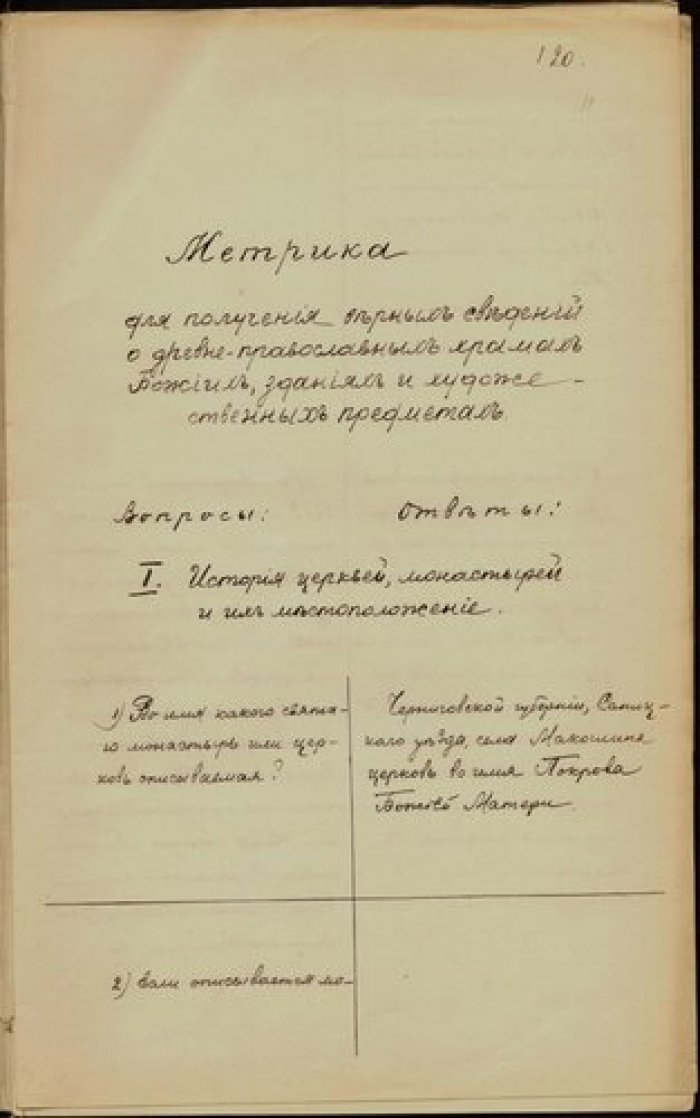 120.
Метрика
для полученія вѣрныхъ свѣденій
о древне-православныхъ храмахъ
Божіихъ, зданіяхъ и художе-
ственныхъ предметахъ.
Вопросы: Отвѣты:
I. Исторія церквей, монастырей
и ихъ мѣстоположеніе.
1) Во имя какого свята-
го монастырь или цер-
ковь описываемая?
Черниговской губерніи, Сосниц-
каго уѣзда, села Макошина
церковь во имя Покрова
Божіей Матери.
2) Если описывается мо-